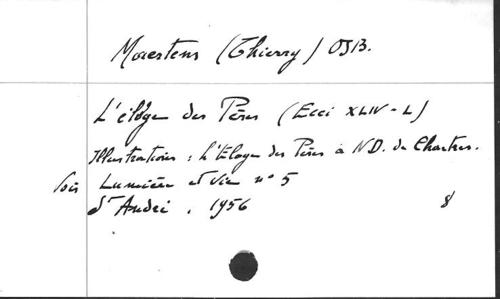 Maertens (Thierry) OSB.
L'éloge des Pères (Ecci XLIV-L)
Illustrations : L'Eloge des Pères à N D. de Chartres.
Lumière et Vie n° 5
St André, 1956 8